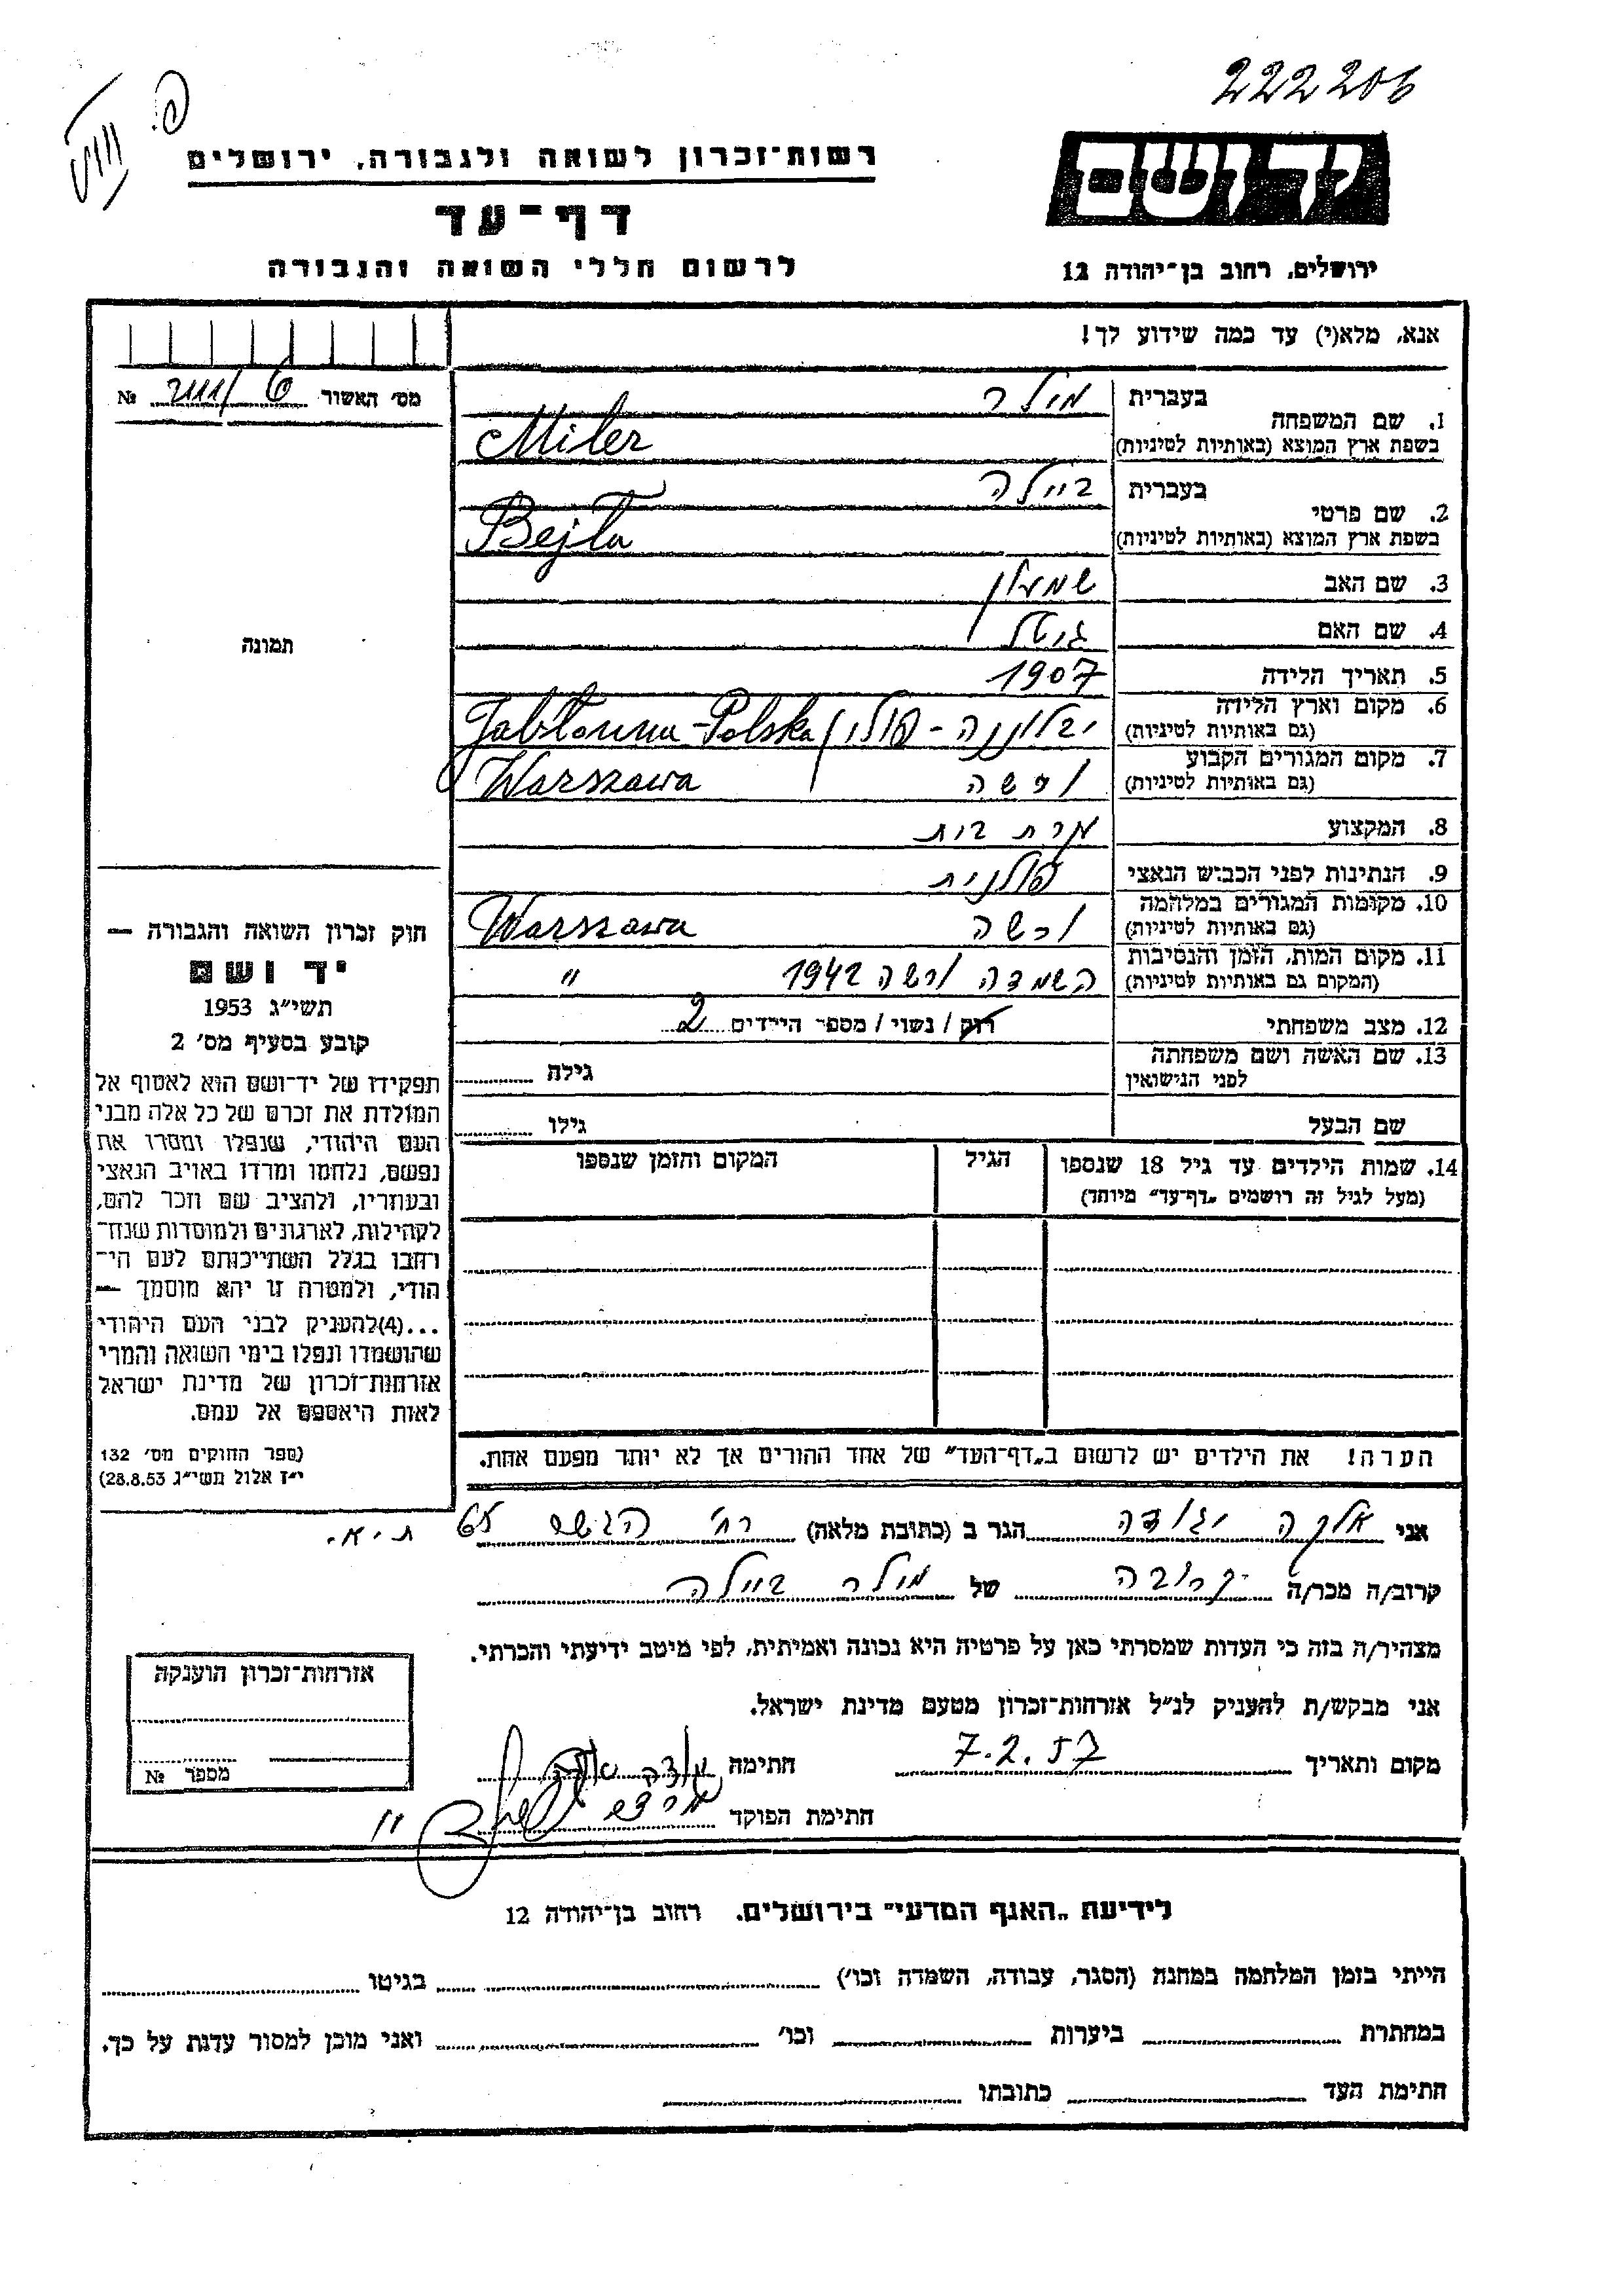 222206
יד ושם
רשות־זכרון לשואה ולגבורה, ירושלים
דף־עד
לרשום חללי השואה והגבורה
ירושלים, רחוב בן־יהודה 12
אנא, מלא(י) עד כמה שידוע לך!
מס׳ האשור № 2111/6
1. שם המשפחה
בעברית מילר
בשפת ארץ המוצא (באותיות לטיניות) Miler
2. שם פרטי
בעברית ביילה
בשפת ארץ המוצא (באותיות לטיניות) Bejła
3. שם האב שמעון
4. שם האם גיטל
5. תאריך הלידה 1907
6. מקום וארץ הלידה
(גם באותיות לטיניות) יבלוננה - פולין Jabłonna-Polska
7. מקום המגורים הקבוע
(גם באותיות לטיניות) ורשה Warszawa
8. המקצוע עקרת בית
9. הנתינות לפני הכבוש הנאצי פולנית
10. מקומות המגורים במלחמה
(גם באותיות לטיניות) ורשה Warszawa
11. מקום המות, הזמן והנסיבות
(המקום גם באותיות לטיניות) השמדה ורשה 1942 "
12. מצב משפחתי רוק / נשוי / מספר הילדים 2
13. שם האשה ושם משפחתה
לפני הנישואין גילה
שם הבעל גילו
14. שמות הילדים עד גיל 18 שנספו הגיל המקום והזמן שנספו
(מעל לגיל זה רושמים „דף־עד״ מיוחד)
הערה! את הילדים יש לרשום ב„דף־העד״ של אחד ההורים אך לא יותר מפעם אחת.
תמונה
חוק זכרון השואה והגבורה —
יד ושם
תשי״ג 1953
קובע בסעיף מס׳ 2
תפקידו של יד־ושם הוא לאסוף אל
המולדת את זכרם של כל אלה מבני
העם היהודי, שנפלו ומסרו את
נפשם, נלחמו ומרדו באויב הנאצי
ובעוזריו, ולהציב שם וזכר להם,
לקהילות, לארגונים ולמוסדות שנח־
רחבו בגלל השתייכותם לעם הי־
הודי, ולמטרה זו יהא מוסמך —
...(4)להעניק לבני העם היהודי
שהושמדו ונפלו בימי השואה והמרי
אזרחות־זכרון של מדינת ישראל
לאות היאספם אל עמם.
(ספר החוקים מס׳ 132
י״ז אלול תשי״ג 28.8.53)
אני אלקה יגודה הגר ב (כתובת מלאה) רח׳ 65 ת״א.
קרוב/ה מכר/ה קרובה של מילר ביילה
מצהיר/ה בזה כי העדות שמסרתי כאן על פרטיה היא נכונה ואמיתית, לפי מיטב ידיעתי והכרתי.
אני מבקש/ת להעניק לנ״ל אזרחות־זכרון מטעם מדינת ישראל.
מקום ותאריך 7.2.57 חתימה
חתימת הפוקד
אזרחות־זכרון הוענקה
מספר №
לידיעת „האגף המדעי״ בירושלים. רחוב בן־יהודה 12
הייתי בזמן המלחמה במחנה (הסגר, עבודה, השמדה וכו׳) בגיטו
במחתרת ביערות וכו׳ ואני מוכן למסור עדות על כך.
חתימת העד כתובתו